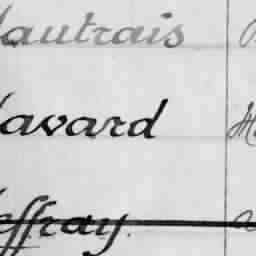 autrais
avard
effray.